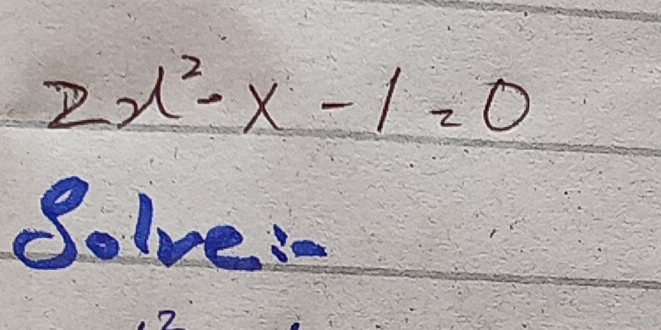 2x² - x - 1 = 0
Solve:-